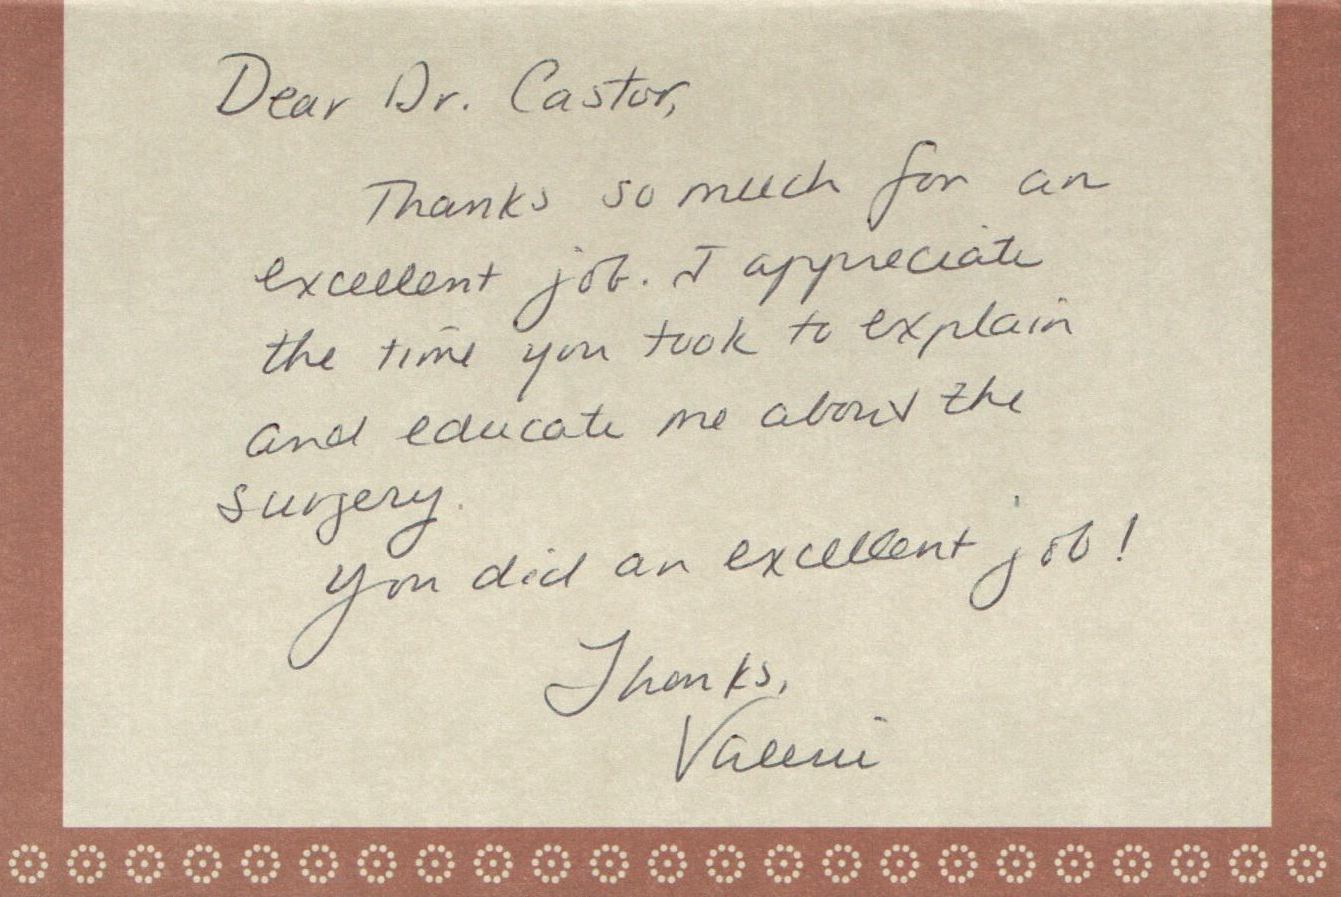 Dear Dr. Castor,
Thanks so much for an
excellent job. I appreciate
the time you took to explain
and educate me about the
surgery.
You did an excellent job!
Thanks,
Valerie